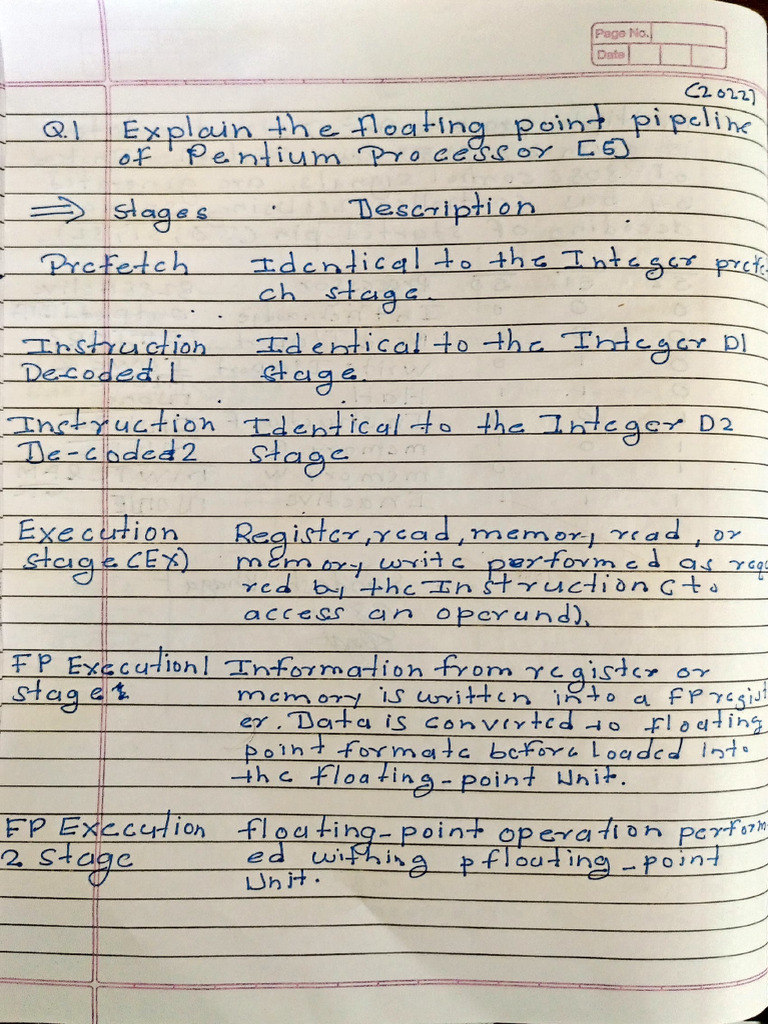 Page No.
Date
(2022)
Q.1 Explain the floating point pipeline
of Pentium Processor [5]
⇒ stages . Description
Prefetch Identical to the Integer prefet
ch stage.
Instruction Identical to the Integer D1
Decoded.1 stage.
Instruction Identical to the Integer D2
De-coded2 stage
Execution Register, read, memory read, or
stage (EX) memory write performed as requ
red by the Instruction (to
access an operund).
FP Execution1 Information from register or
stage memory is written into a FP regist
er. Data is converted to floating
point formate before loaded into
the floating-point Unit.
FP Execution floating-point operation perform
2 stage ed withing pflouting-point
Unit.